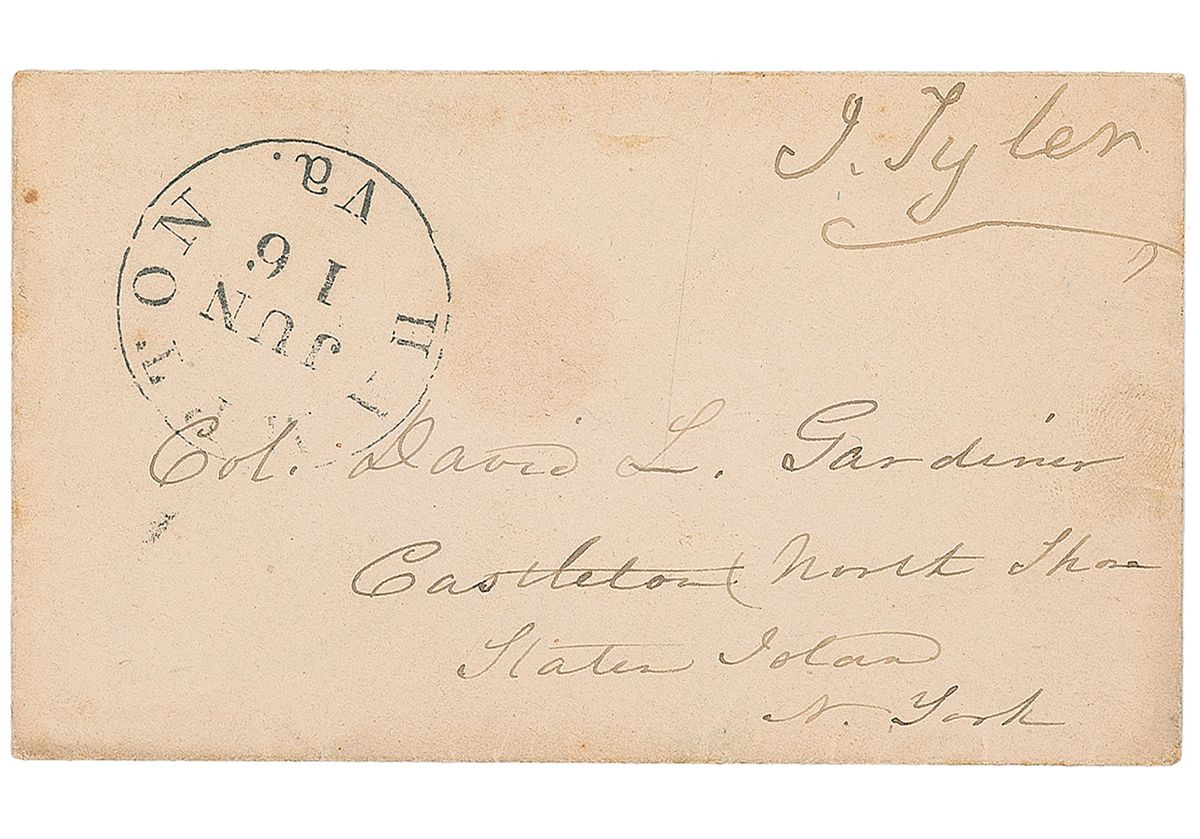 J. Tyler
HAMPTON Va.
JUN
16
Col. David L. Gardiner
Castleton (North Shore
Staten Island
N. York